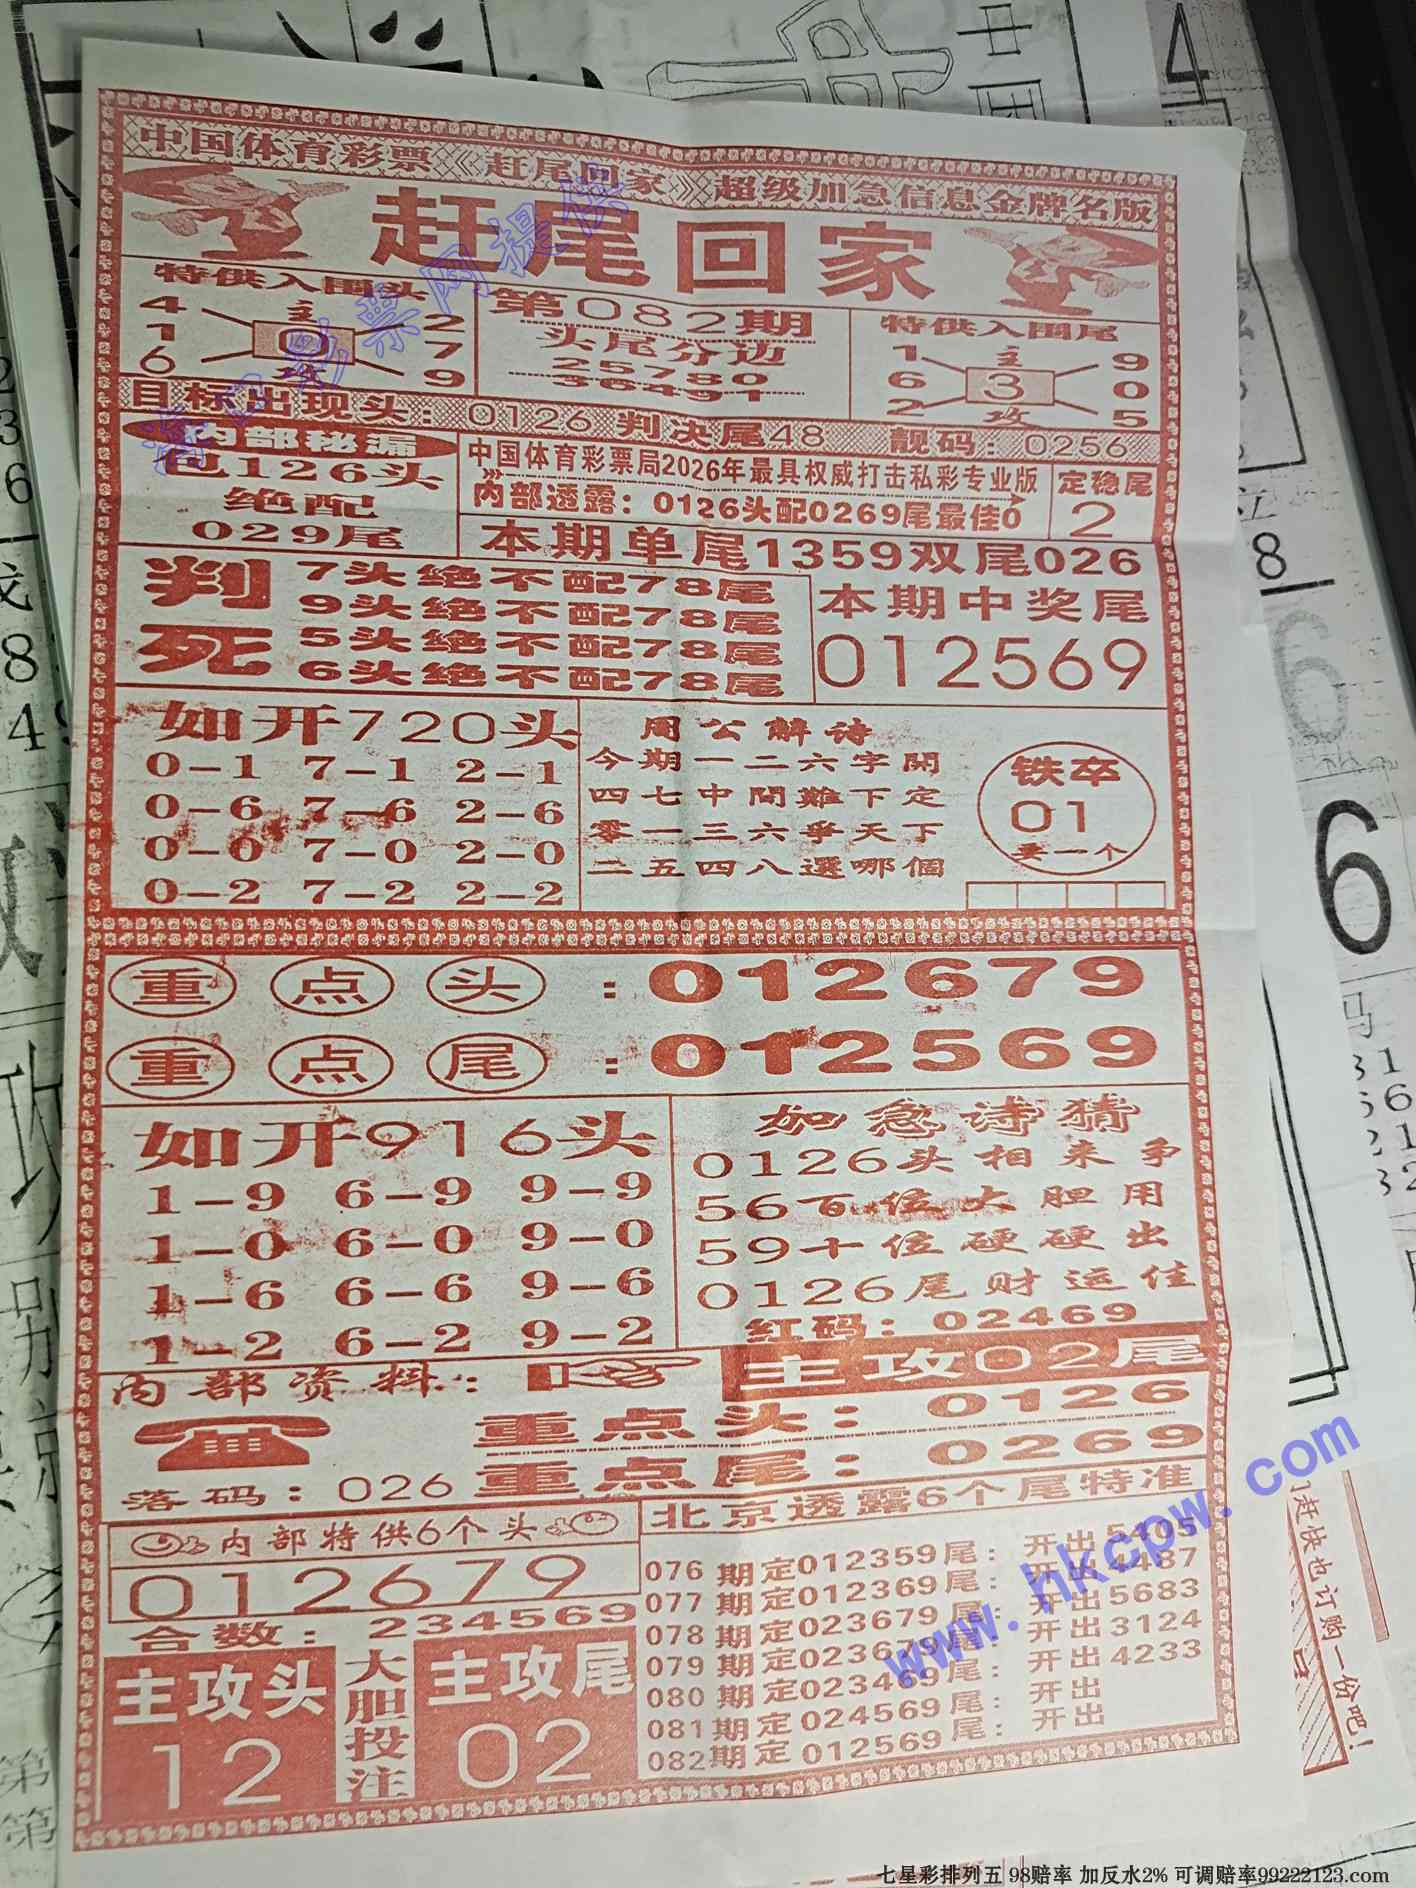 中国体育彩票《赶尾回家》超级加急信息金牌名版
赶尾回家
特供入围头
4 主 2
1 0 7
6 攻 9
第082期
头尾分边
25780
36491
特供入围尾
1 主 9
6 3 0
2 攻 5
目标出现头：0126 判决尾48 靓码：0256
内部秘漏
包126头
绝配
029尾
中国体育彩票局2026年最具权威打击私彩专业版
内部透露：0126头配0269尾最佳0
定稳尾
2
本期单尾1359双尾026
判死
7头绝不配78尾
9头绝不配78尾
5头绝不配78尾
6头绝不配78尾
本期中奖尾
012569
如开720头
0-1 7-1 2-1
0-6 7-6 2-6
0-0 7-0 2-0
0-2 7-2 2-2
周公解诗
今期一二六字開
四七中間難下定
零一三六爭天下
二五四八選哪個
铁卒
01
卖一个
重点头：012679
重点尾：012569
如开916头
1-9 6-9 9-9
1-0 6-0 9-0
1-6 6-6 9-6
1-2 6-2 9-2
加急诗猜
0126头相来争
56百位大胆用
59十位硬硬出
0126尾财运佳
红码：02469
内部资料：
主攻02尾
重点头：0126
重点尾：0269
落码：026
内部特供6个头
012679
合数：234569
主攻头
12
大胆投注
主攻尾
02
北京透露6个尾特准
076期定012359尾：开出5405
077期定012369尾：开出4487
078期定023679尾：开出5683
079期定023679尾：开出3124
080期定023469尾：开出4233
081期定024569尾：开出
082期定012569尾：开出
www.hkcpw.com
赶快也订购一份吧！
七星彩排列五 98赔率 加反水2% 可调赔率99222123.com